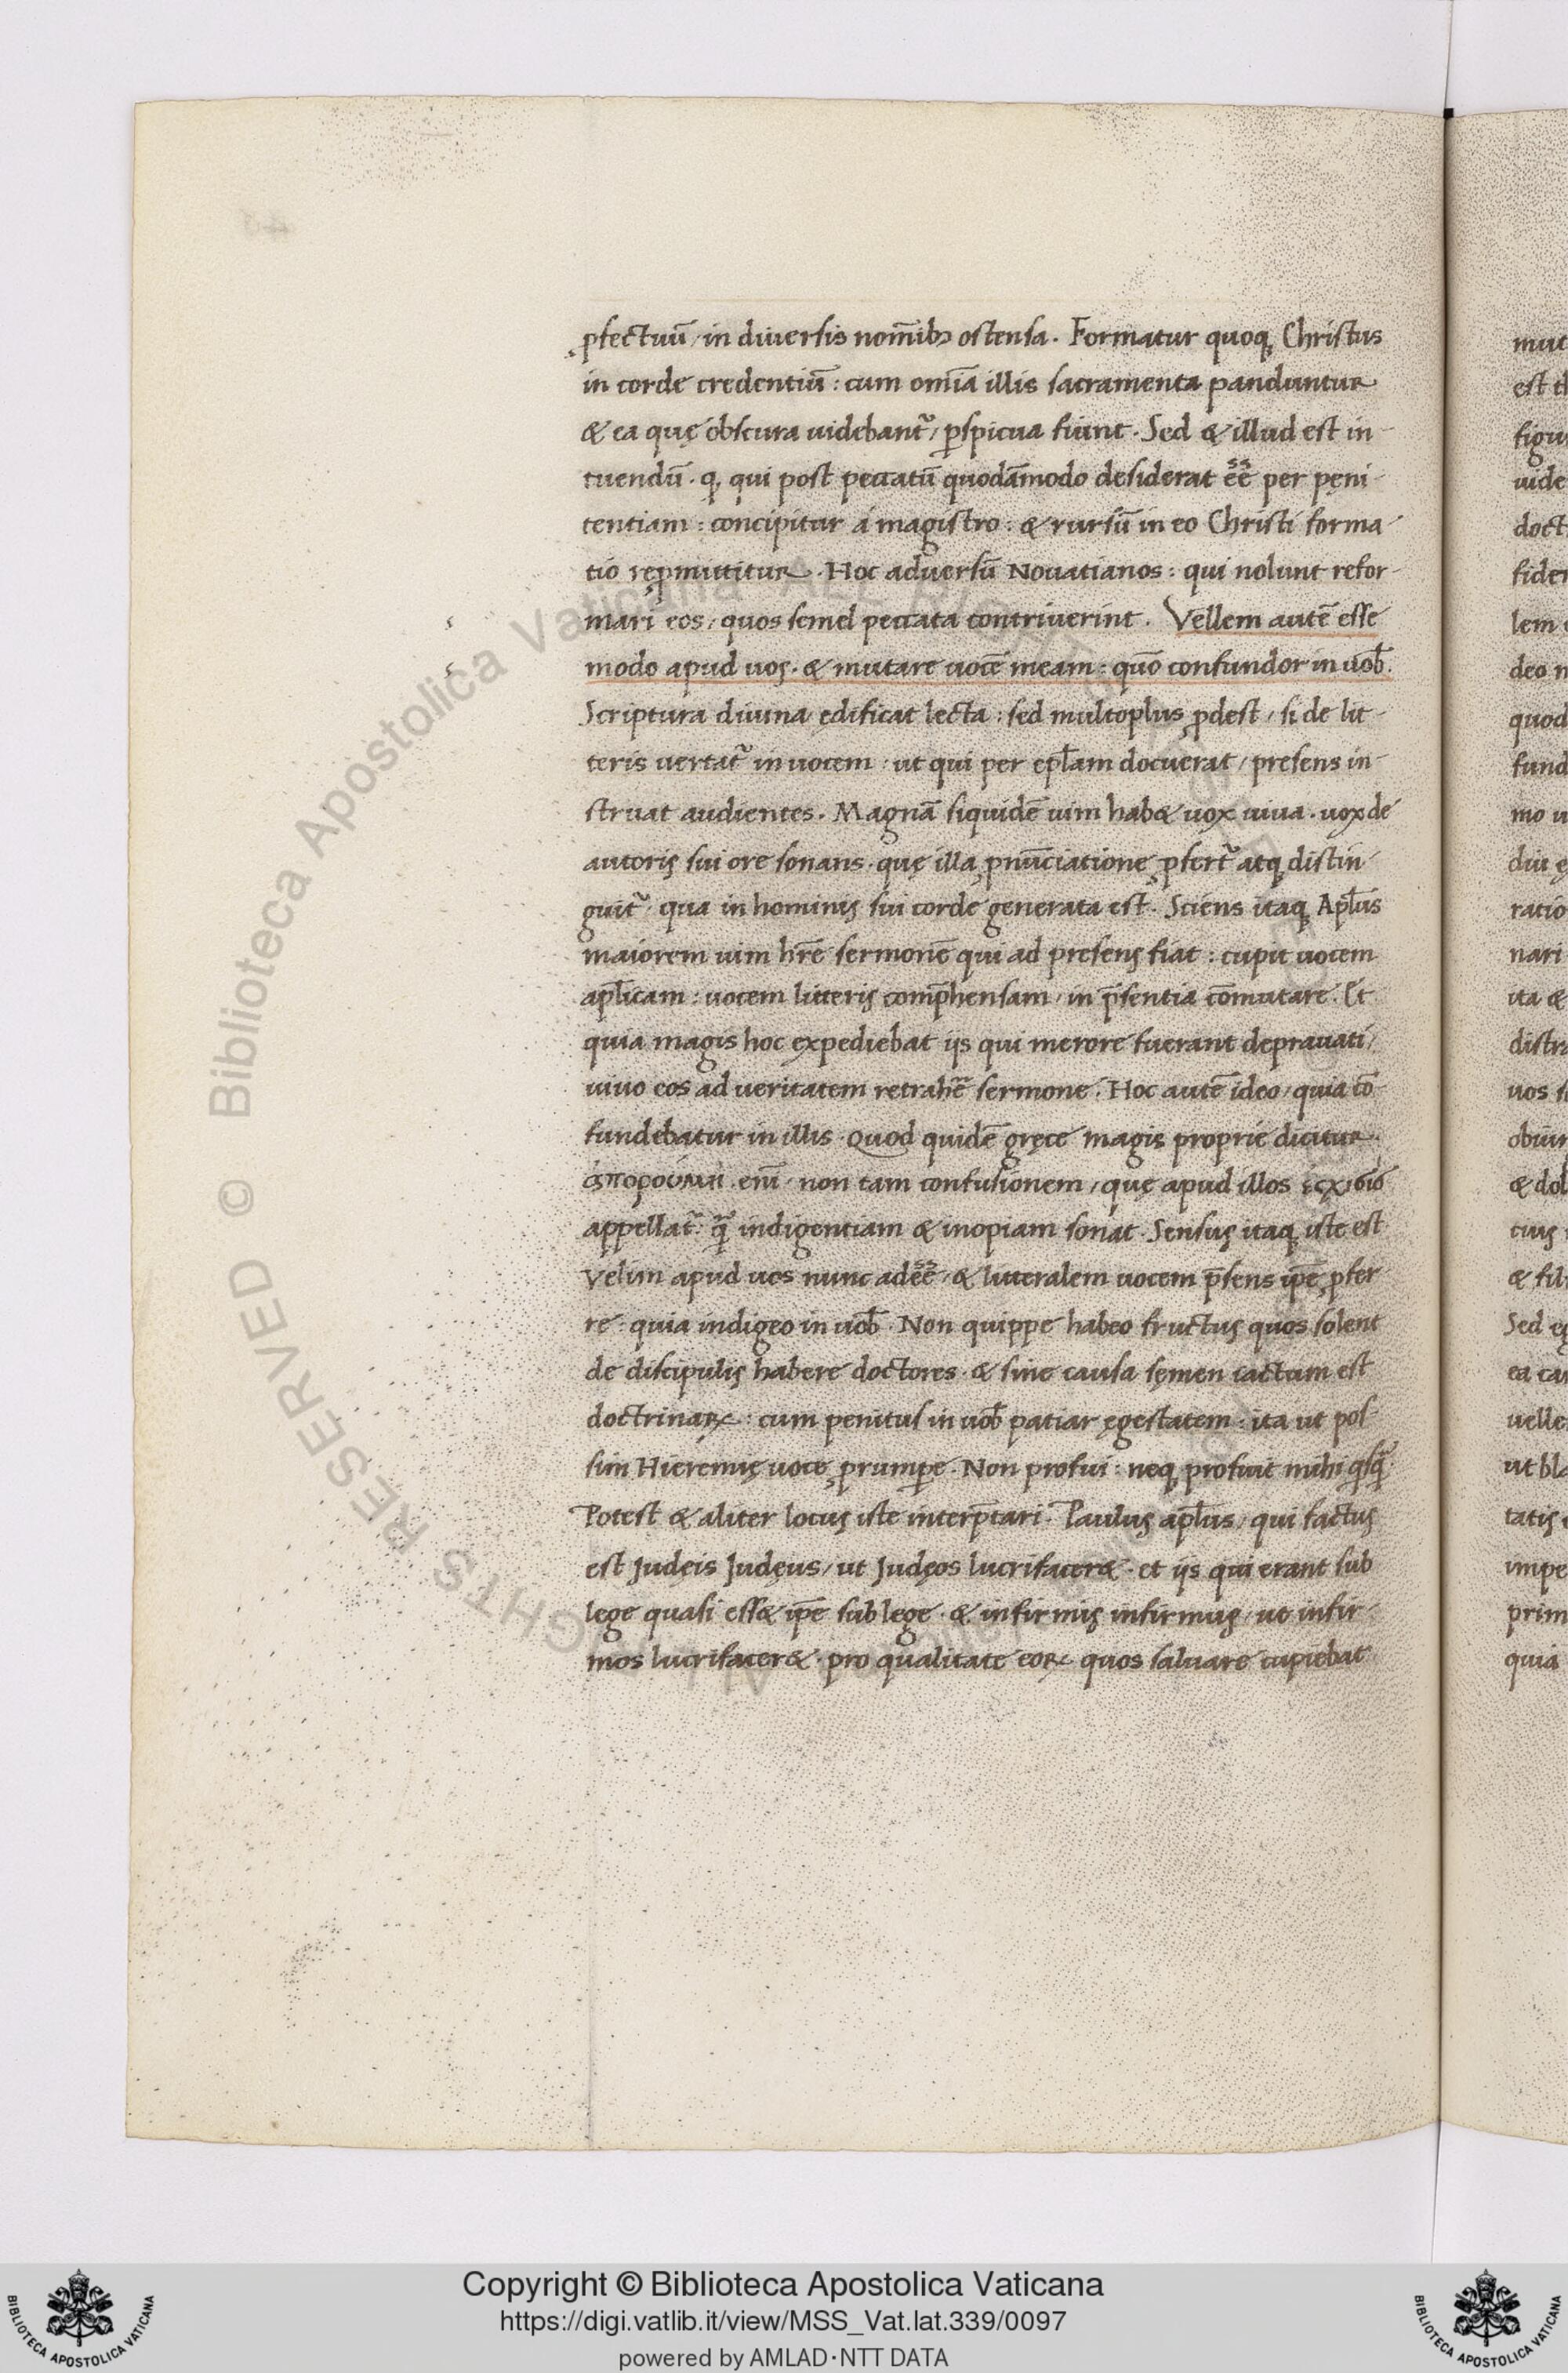 ꝓfectuū / in diuersis nom̄ibꝫ ostensa. Formatur quoqꝫ Christus
in corde credentiū : cum om̄ia illis sacramenta panduntur
& ea quę obscura uidebant᷑ / ꝑspicua fiunt. Sed & illud est in
tuendū. ꝙ qui post peccatū quodāmodo desiderat e͞e͞ per pęni
tentiam : concipitur á magistro : & rursū in eo Christi forma
tio reꝓmittitur. Hoc aduersū Nouatianos : qui nolunt refor
mari eos / quos semel peccata contriuerint. Vellem autē esse
modo apud uos. & mutare uocē meam : quō confundor in uob̄.
Scriptura diuina edificat lecta : sed multoplus ꝓdest / si de lit
teris vertat᷑ in uocem : ut qui per ep̄lam docuerat / presens in
struat audientes. Magnā siquidē uim hab& uox uiua. uox de
autoris sui ore sonans. quę illa ꝓnūciatione ꝓfert᷑ atqꝫ distin
guit᷑. qua in hominis sui corde generata est. Sciens itaqꝫ Apl̄us
maiorem uim hr̄e sermonē qui ad presens fiat : cupit uocem
apl̄icam : uocem litteris comp̄hensam / in p̄sentia cōmutare. Et
quia magis hoc expediebat ijs qui merore fuerant deprauati /
uiuo eos ad ueritatem retrahē sermone. Hoc autē ideo / quia cō
fundebatur in illis. Quod quidē gręce magis proprie dicitur
eni᷑ non tam confusionem / quę apud illos
appellat᷑. q̄ indigentiam & inopiam sonat. Sensus itaqꝫ iste est
Velim apud uos nunc ade͞e͞ / & litteralem uocem p̄sens ip̄e ꝓfer
re : quia indigeo in uob̄. Non quippe habeo fructus quos solent
de discipulis habere doctores. & sine causa semen iactum est
doctrinaꝝ : cum penitus in uob̄ patiar ęgestatem : ita ut pos
sim Hieremię uoce ꝓrumꝑe. Non profui : neqꝫ profuit mihi qͥsq̄
Potest & aliter locus iste interp̄tari. Paulus apl̄us / qui factus
est Judęis Judęus / ut Judęos lucrifacer&. et ijs qui erant sub
lege quasi ess& ip̄e sub lege. & infirmis infirmus / ut infir
mos lucrifacer&. pro qualitate eoꝝ quos saluare cupiebat
mut
figu
uide
doct
fider
lem
deo
quod
fund
mo
diu
ratio
nari
ita &
distra
uos
obuir
& dol
cuius
& fil
Sed
ea
uelle
ut bla
tatis
impe
prim
quia
© Biblioteca Apostolica Vaticana
ALL RIGHTS RESERVED
Copyright © Biblioteca Apostolica Vaticana
https://digi.vatlib.it/view/MSS_Vat.lat.339/0097
powered by AMLAD·NTT DATA
BIBLIOTECA APOSTOLICA VATICANA
BIBLIOTECA APOSTOLICA VATICANA